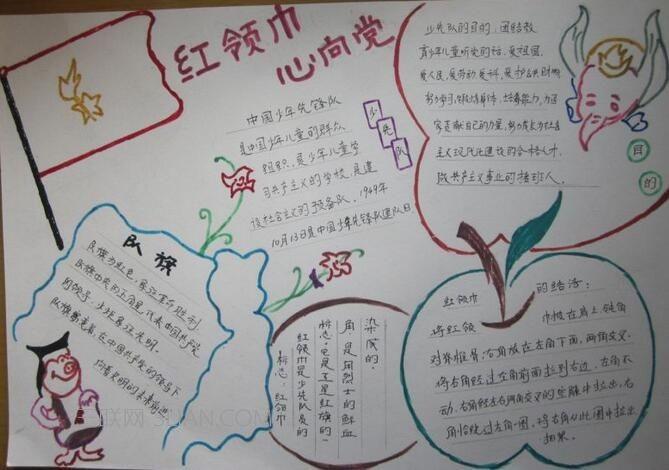 红领巾
心向党
中国少年先锋队
是中国少年儿童的群众
组织,是少年儿童学
习共产主义的学校,是建
设社会主义的预备队。1949年
10月13日是中国少年先锋队建队日.
少先队
少先队的目的:团结教
育少年儿童听党的话,爱祖国,
爱人民,爱劳动,爱科学,爱护公共财物,
努力学习,锻炼身体,培养能力,为
家贡献自己的力量,努力成长为社会
主义现代化建设的合格人才,
做共产主义事业的接班人。
目的
队旗
队旗为红色,象征革命胜利.
队旗中央的五角星,代表中国共产党
的领导,火炬象征光明.
在中国共产党的领导下
向着光明的未来前进
标志:红领巾
红领巾是少先队员的
标志,它是五星红旗的一
角,是用烈士的鲜血
染成的.
红领巾的结活:
将红领巾披在肩上,钝角
对脊椎骨,右角放在左角下面,两角交叉.
将右角经过左角前面拉到右边,左角不
动,右角经左右两角交叉的空隙中拉出,右
角恰绕过左角一圈,将右角从此圈中拉出
抽紧.
三联网 3LIAN.COM